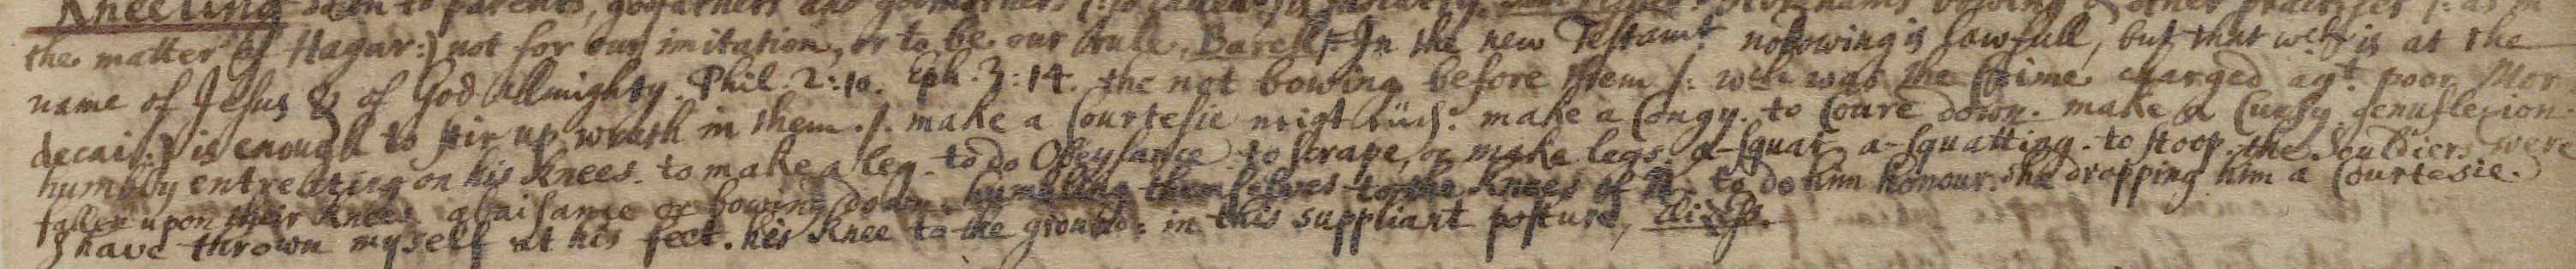 Kneeling down to parents, godfathers and godmothers
the matter of Hagar:) not for our imitation, or to be our rule. Barcl. In the new Testamt no bowing is Lawfull, but that wch is at the
name of Jesus & of God Allmighty. Phil. 2:10. Eph. 3:14. the not bowing before them /: wch was the Crime charged agt. poor Mor
decai:) is enough to stir up wrath in them. /. make a Courtesie make a Congy. to Coure down. make a Cursy. genuflexion
humbly entreating on his knees. to make a leg. to do Obeysance to scrape, or make legs. a-squat a-squatting. to stoop. the Souldiers were
fallen upon their knees abaisance or bowing down. humbling themselves to the knees of N. to do him honour. she dropping him a Courtesie.
I have thrown myself at his feet. his knee to the ground: in this suppliant posture,